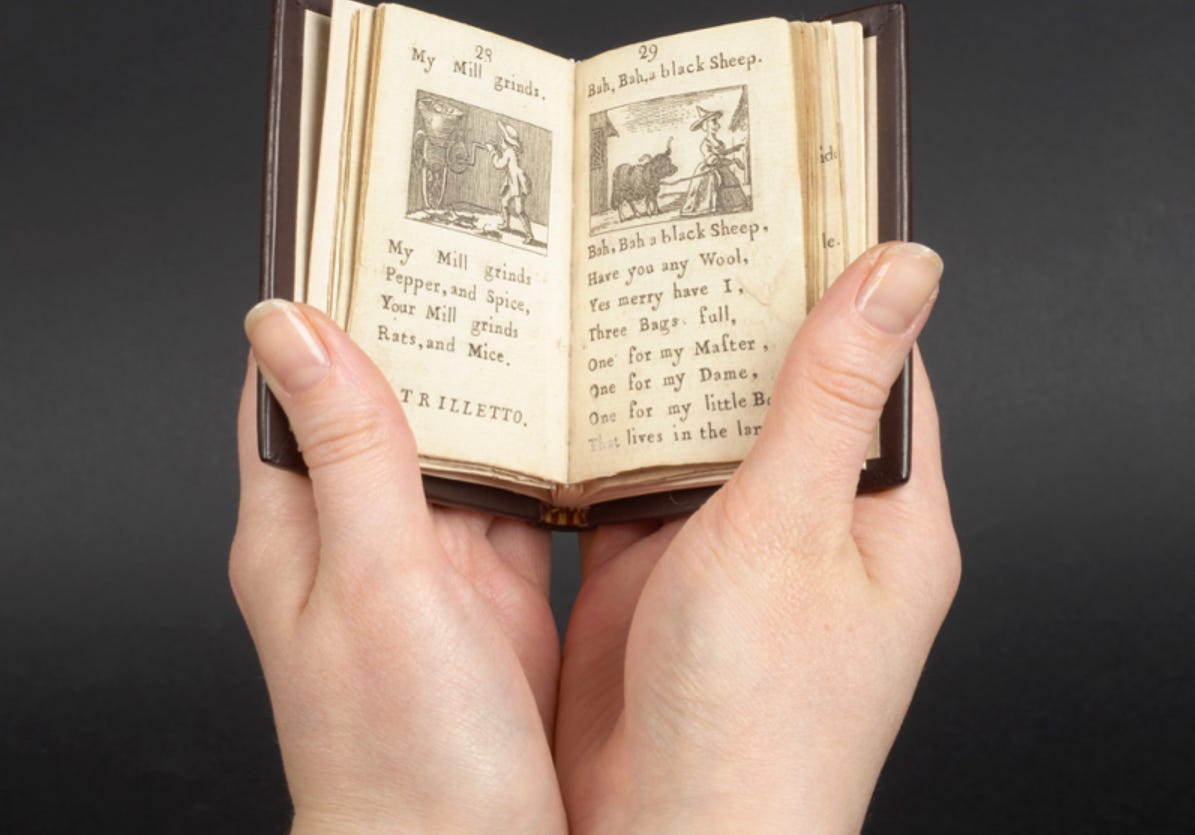 28
My Mill grinds.
My Mill grinds
Pepper, and Spice,
Your Mill grinds
Rats, and Mice.
TRILLETTO.
29
Bah, Bah, a black Sheep.
Bah, Bah a black Sheep,
Have you any Wool,
Yes merry have I,
Three Bags full,
One for my Maſter,
One for my Dame,
One for my little
That lives in the